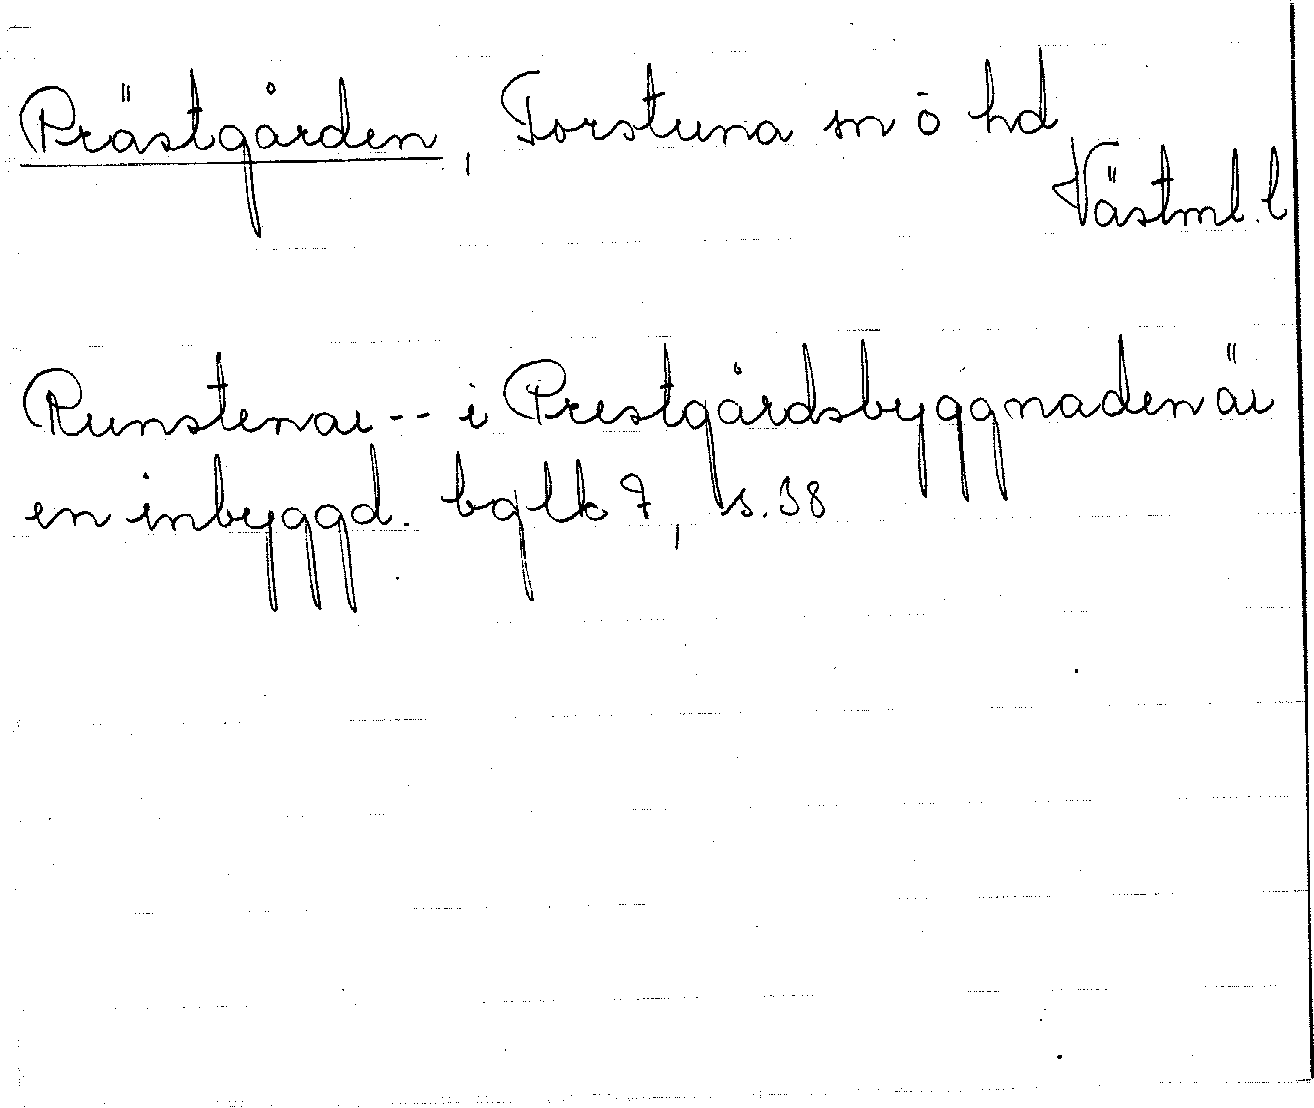 Prästgården, Torstuna sn o hd
Västml. l
Runstenar -- i Prestgårdsbyggnaden är
en inbyggd. bglk 7, s. 38